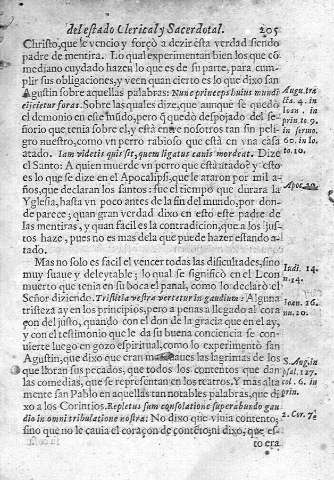 del estado Clerical y Sacerdotal. 205
Christo, que le vencio y forçò a dezir esta verdad siendo
padre de mentira. Lo qual experimentan bien los que co
mediano cuydado hazen lo que es de su parte, para cum-
plir sus obligaciones, y veen quan cierto es lo que dixo san
Agustin sobre aquellas palabras: Nunc princeps huius mundi
eijcietur foras. Sobre las quales dize, que aunque se quedò
el demonio en este mũdo, pero q̃ quedò despojado del se-
ñorio que tenia sobre el, y està entre nosotros tan sin peli-
gro nuestro, como vn perro rabioso que està en vna casa
atado. Iam videtis quis sit, quem ligatus canis mordeat. Dize
el Santo: A quien muerde vn perro que està atado? y esto
es lo que se dize en el Apocalipsi, que le ataron por mil a-
ños, que declaran los santos: fue el tiempo que durara la
Yglesia, hasta vn poco antes de la fin del mundo, por don-
de parece; quan gran verdad dixo en esto este padre de
las mentiras, y quan facil es la contradicion, que a los jus-
tos haze, pues no es mas dela que puede hazer estando a-
tado.
Mas no solo es facil el vencer todas las dificultades, sino
muy suaue y deleytable; lo qual se significò en el Leon
muerto que tenia en su boca el panal, como lo declarò el
Señor diziendo. Tristitia vestra vertetur in gaudium: Alguna
tristeza ay en los principios, pero a penas a llegado al cora
çon del justo, quando con el don de la gracia que en el ay,
y con el testimonio que le da su buena conciencia se con-
uierte luego en gozo espiritual, como lo experimentò san
Agustin, que dixo que eran mas suaues las lagrimas de los
que lloran sus pecados, que todos los contentos que dan
las comedias, que se representan en los teatros. Y mas alta
mente san Pablo en aquellas tan notables palabras, que di
xo a los Corintios. Repletus sum consolatione superabundo gau
dio in omni tribulatione nostra: No dixo que viuia contento;
sino que no le cauia el coraçon de contẽto; ni dixo, que es-
to era
Aug. tra
cta. 4. in
Ioan. in
prin. to 9.
in ser.
60. in lo.
to. 10.
Apoc. 20.
Iudi. 14.
n. 14.
Ioan. 16.
nu. 20.
S. Aug. in
psal. 127.
col. 6. in
prin.
2. Cor. 7.